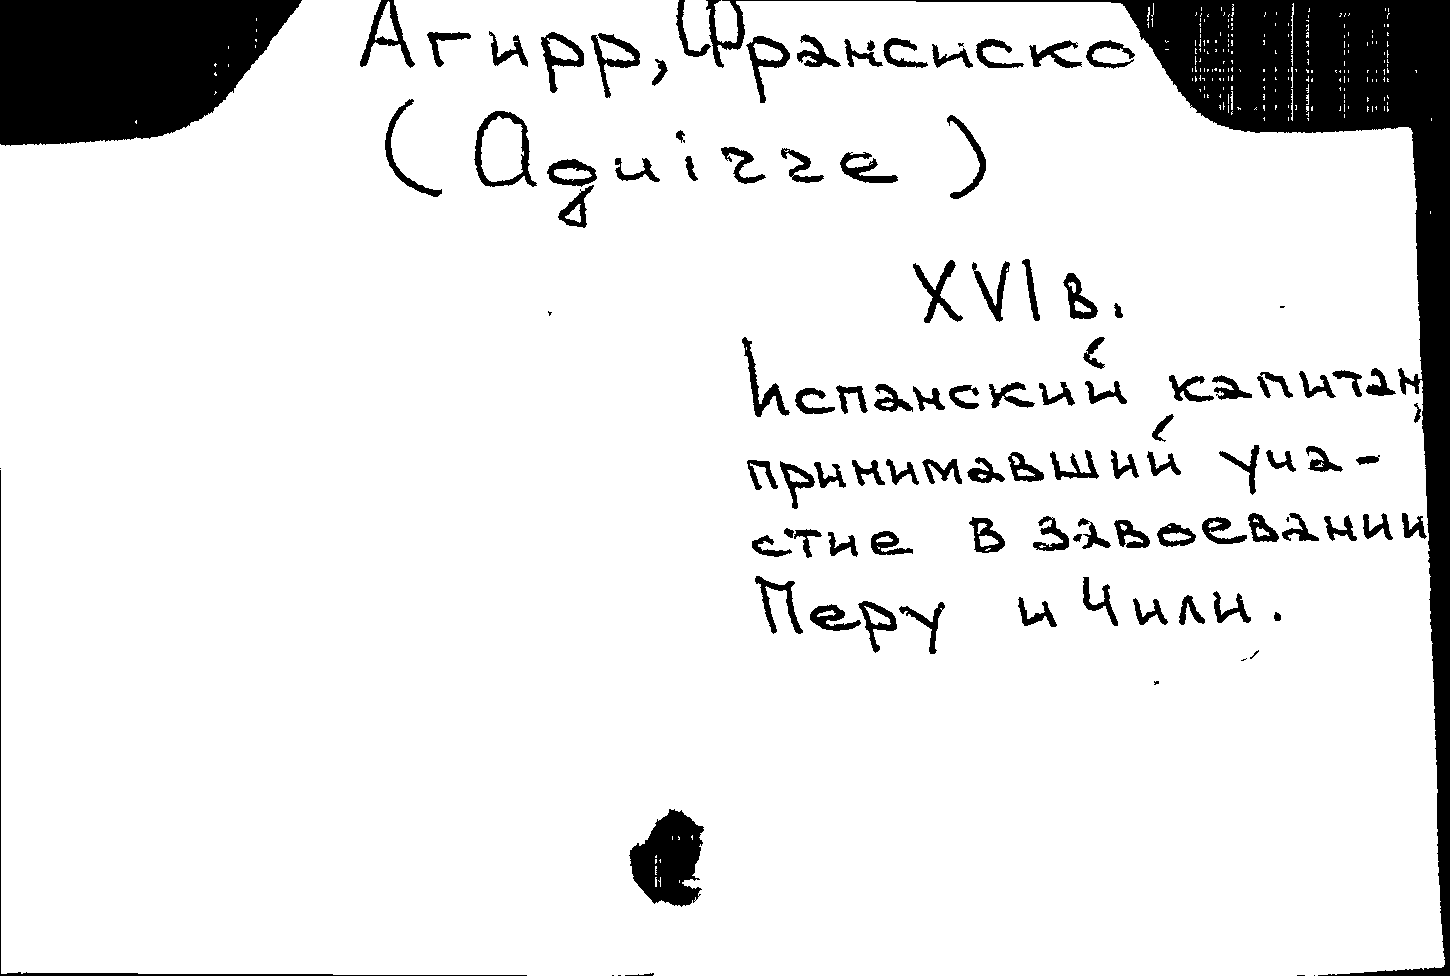 Агирр, Франсиско
(Aguirre)
XVI в.
Испанский капитан,
принимавший уча-
стие в завоевании
Перу и Чили.